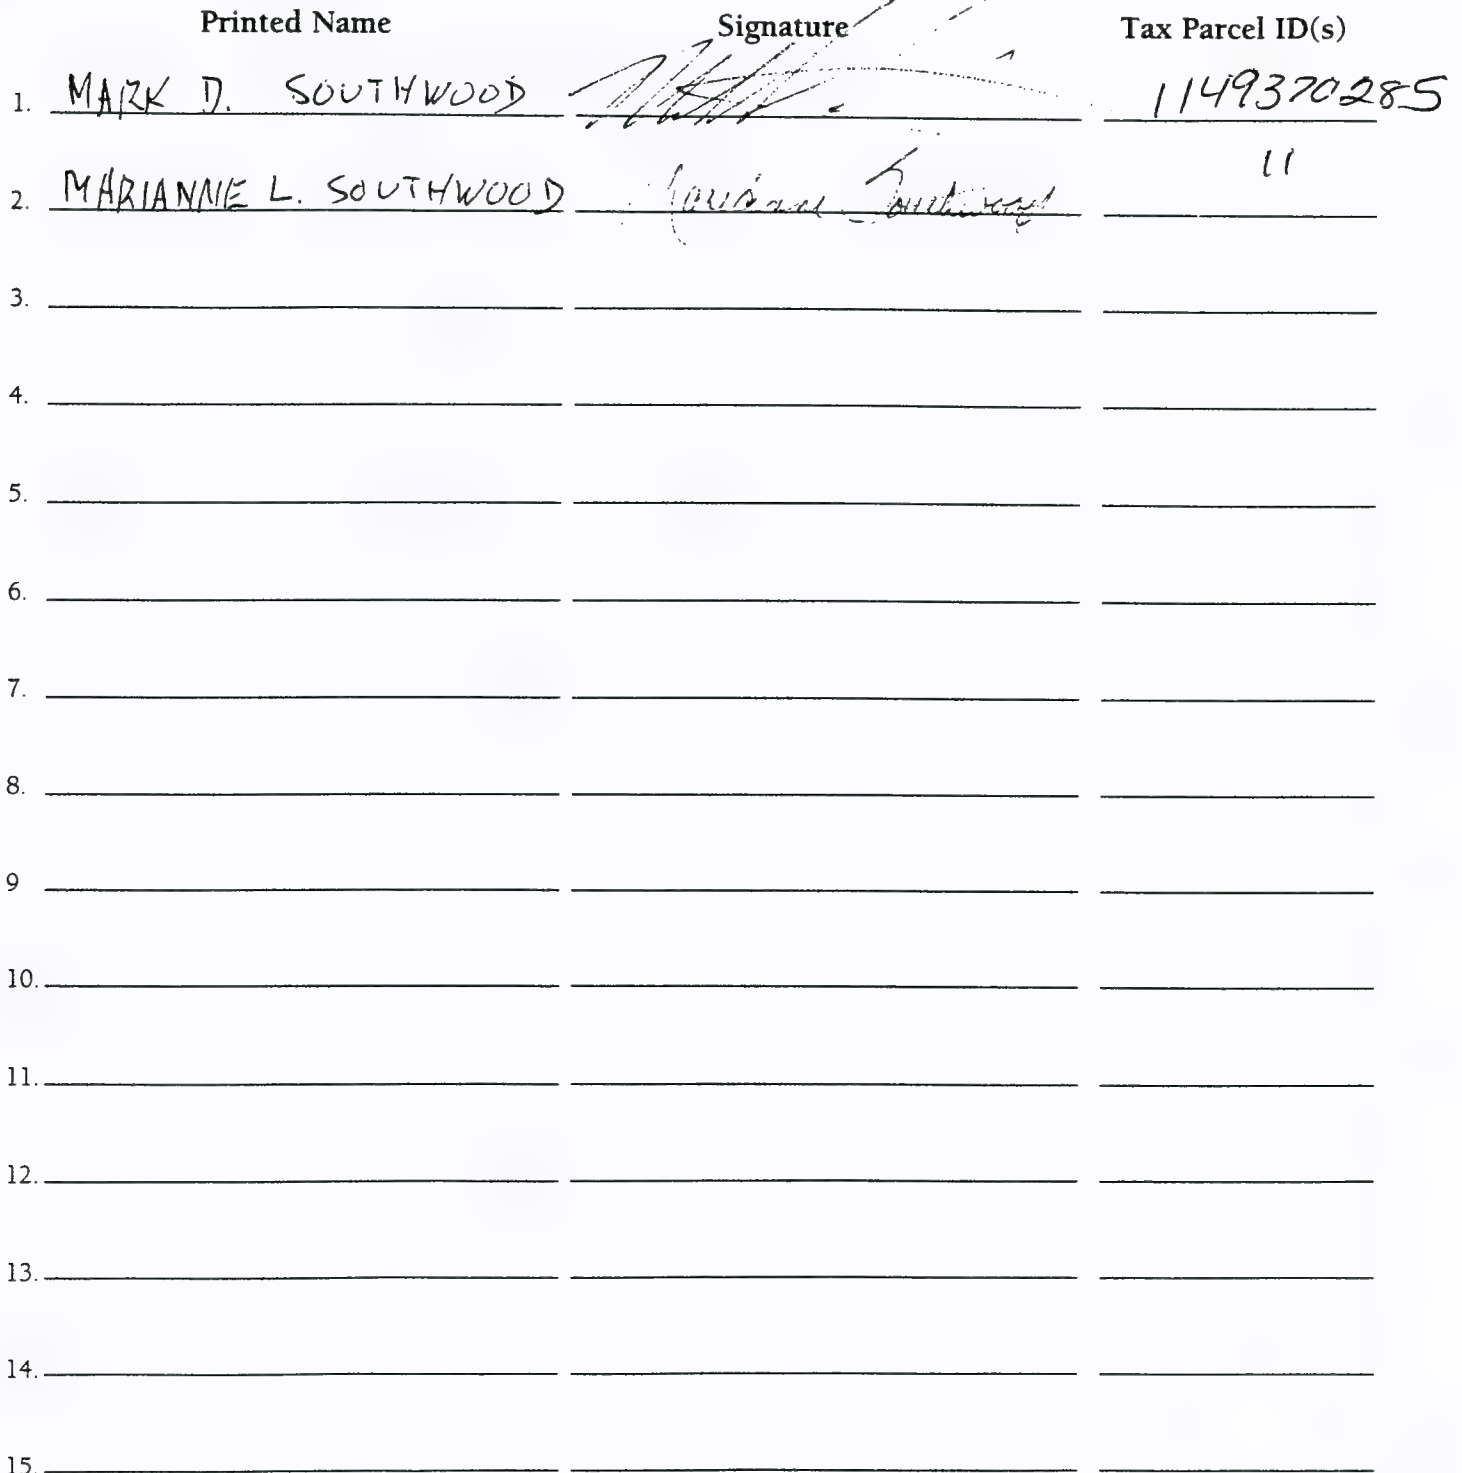 Printed Name Signature Tax Parcel ID(s)
1. MARK D. SOUTHWOOD 1149370285
2. MARIANNE L. SOUTHWOOD Marianne Southwood 11
3.
4.
5.
6.
7.
8.
9
10.
11.
12.
13.
14.
15.